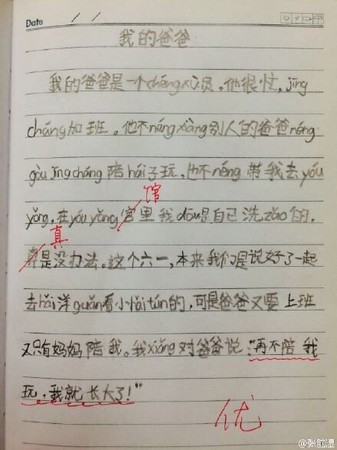 Date
我的爸爸
我的爸爸是一个chéngxù员，他很忙，jīng
cháng加班。他不néngxiàng别人的爸爸néng
gòu jīngcháng陪hái子玩，也不néng带我去yóu
馆
yǒng，在yóuyǒng宫里我dōu是自己洗zǎo的，
真
是没办法。这个六一，本来我们是说好了一起
去hǎi洋guǎn看小hǎi tún的，可是爸爸又要上班
又只有妈妈陪我。我xiǎng对爸爸说"再不陪我
玩，我就长大了！"
优